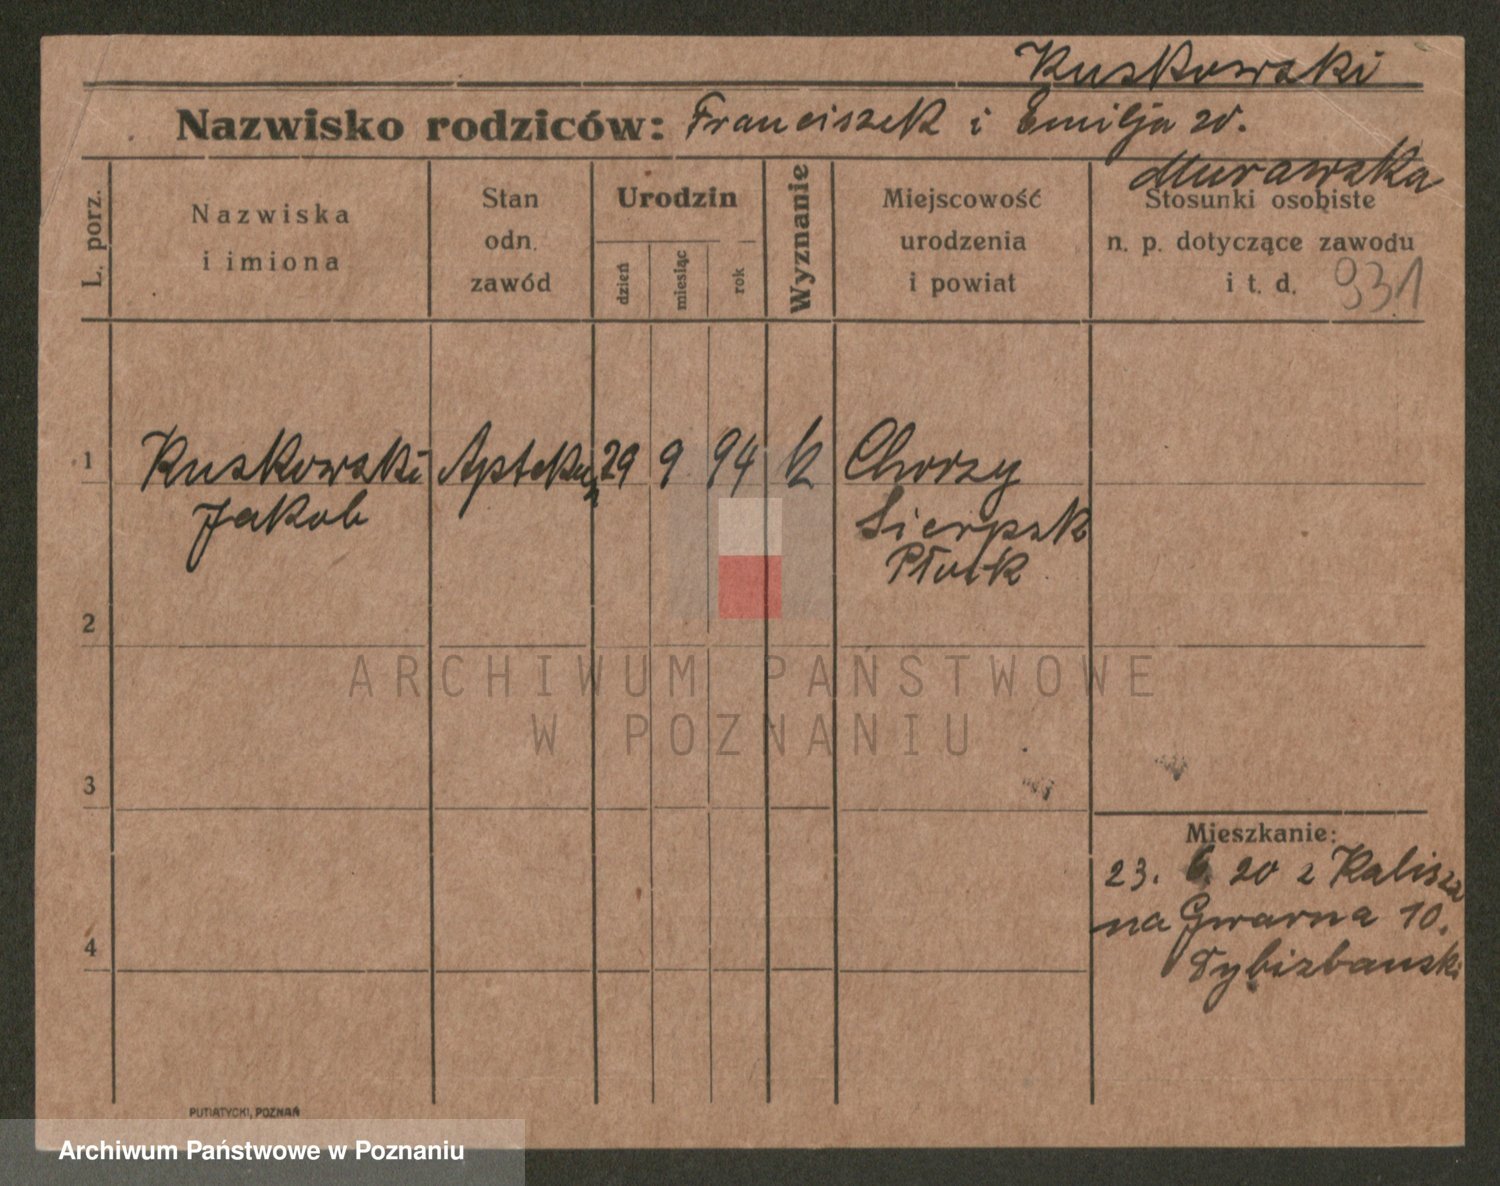 Kuskowski
Nazwisko rodziców: Franciszek i Emilja zd.
Murawska
L. porz.
Nazwiska
i imiona
Stan
odn.
zawód
Urodzin
dzień
miesiąc
rok
Wyznanie
Miejscowość
urodzenia
i powiat
Stosunki osobiste
n. p. dotyczące zawodu
i t. d.
931
1 Kuskowski Aptekarz 29 9 94 k Chorzy
Jakob Sierpsk
Płock
2
ARCHIWUM PAŃSTWOWE
W POZNANIU
3
Mieszkanie:
23. 6. 20 z Kalisza
na Gwarna 10.
4
PUTIATYCKI, POZNAŃ
Archiwum Państwowe w Poznaniu